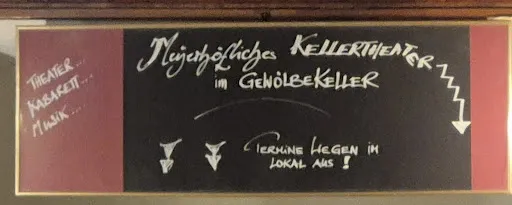 THEATER...
KABARETT...
MUSIK...
Meyerhöfliches KELLERTHEATER
im GEWÖLBEKELLER
TERMINE LIEGEN IM
LOKAL AUS!